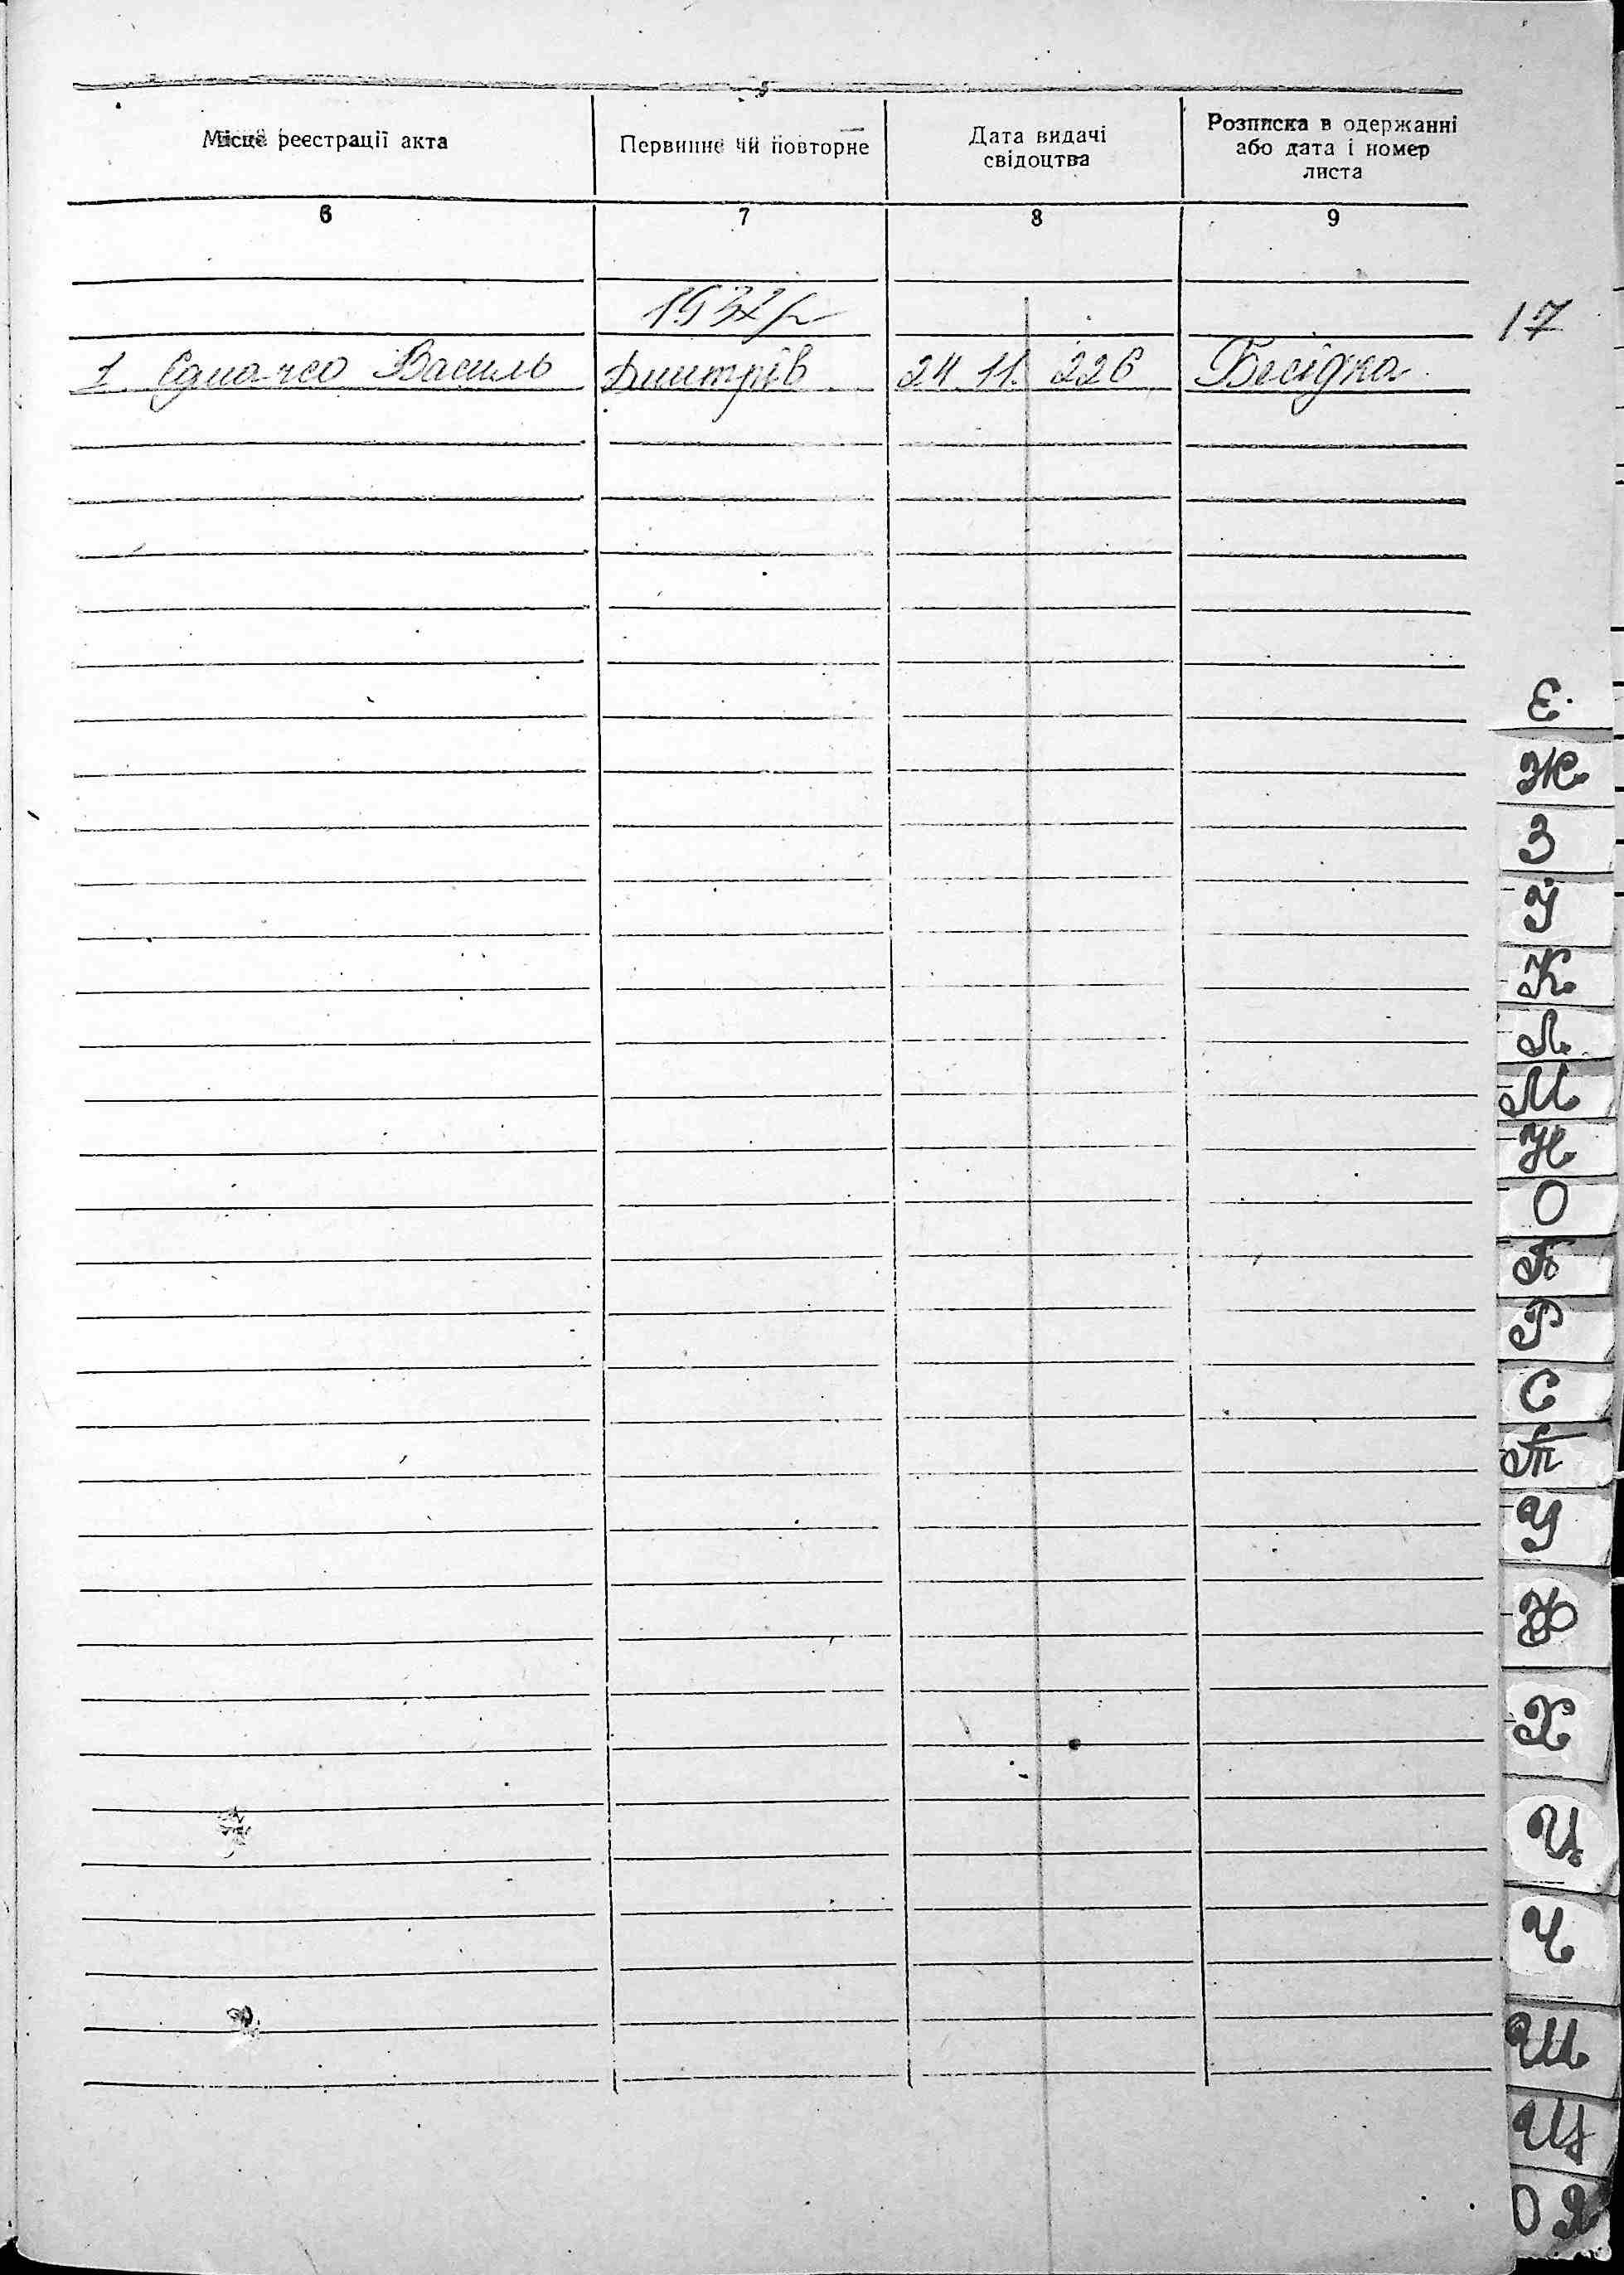 Місце реєстрації акта
Первинне чи повторне
Дата видачі
свідоцтва
Розписка в одержанні
або дата і номер
листа
6 7 8 9
1937р
17
1 Василь Дмитрів 24 11 226 Бесідка
Є
Ж
З
Й
К
Л
М
Н
О
П
Р
С
Т
У
Ф
Х
Ц
Ч
Ш
Щ
Ю Я